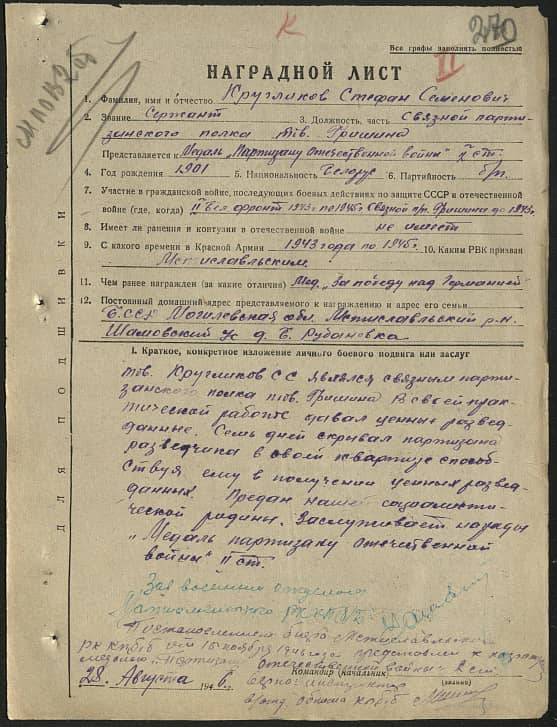 К
270
Все графы заполнять полностью
II
НАГРАДНОЙ ЛИСТ
1. Фамилия, имя и отчество Кругликов Стефан Семенович
2. Звание Сержант 3. Должность, часть Связной парти-
занского полка тов. Гришина
Представляется к Медаль "Партизану Отечественной войны" II ст.
4. Год рождения 1901 5. Национальность Белорус 6. Партийность б/п.
7. Участие в гражданской войне, последующих боевых действиях по защите СССР и отечественной
войне (где, когда) фронт 1943 г по 1945 г. Связной Гришина до 1943 г.
8. Имеет ли ранения и контузии в отечественной войне не имеет
9. С какого времени в Красной Армии 1943 года по 1945 г. 10. Каким РВК призван
Мстиславльским
11. Чем ранее награжден (за какие отличия) Мед. "За победу над Германией"
12. Постоянный домашний адрес представляемого к награждению и адрес его семьи
БССР Могилевская обл. Мстиславльский р-н.
Шамовский д. Б. Рубановка
ДЛЯ ПОДШИВКИ
I. Краткое, конкретное изложение личного боевого подвига или заслуг
тов. Кругликов С С являлся связным парти-
занского полка тов. Гришина В своей прак-
тической работе давал ценные развед-
данные. Семь дней скрывал партизана
разведчика в своей квартире способ-
ствуя ему в получении ценных развед-
данных. Предан нашей социалисти-
ческой родины. Заслуживает награды
"Медаль партизану отечественной
войны" II ст.
Зав военным отделом
РККПБ
Постановлением бюро Мстиславльского
РК КПб/б от 15 ноября 1946 года представлен к награде
медалью "Партизану отечественной войны" 2 ст.
Командир (начальник)
(звание)
28 Августа 1946 г.
обкома КП/б/Б